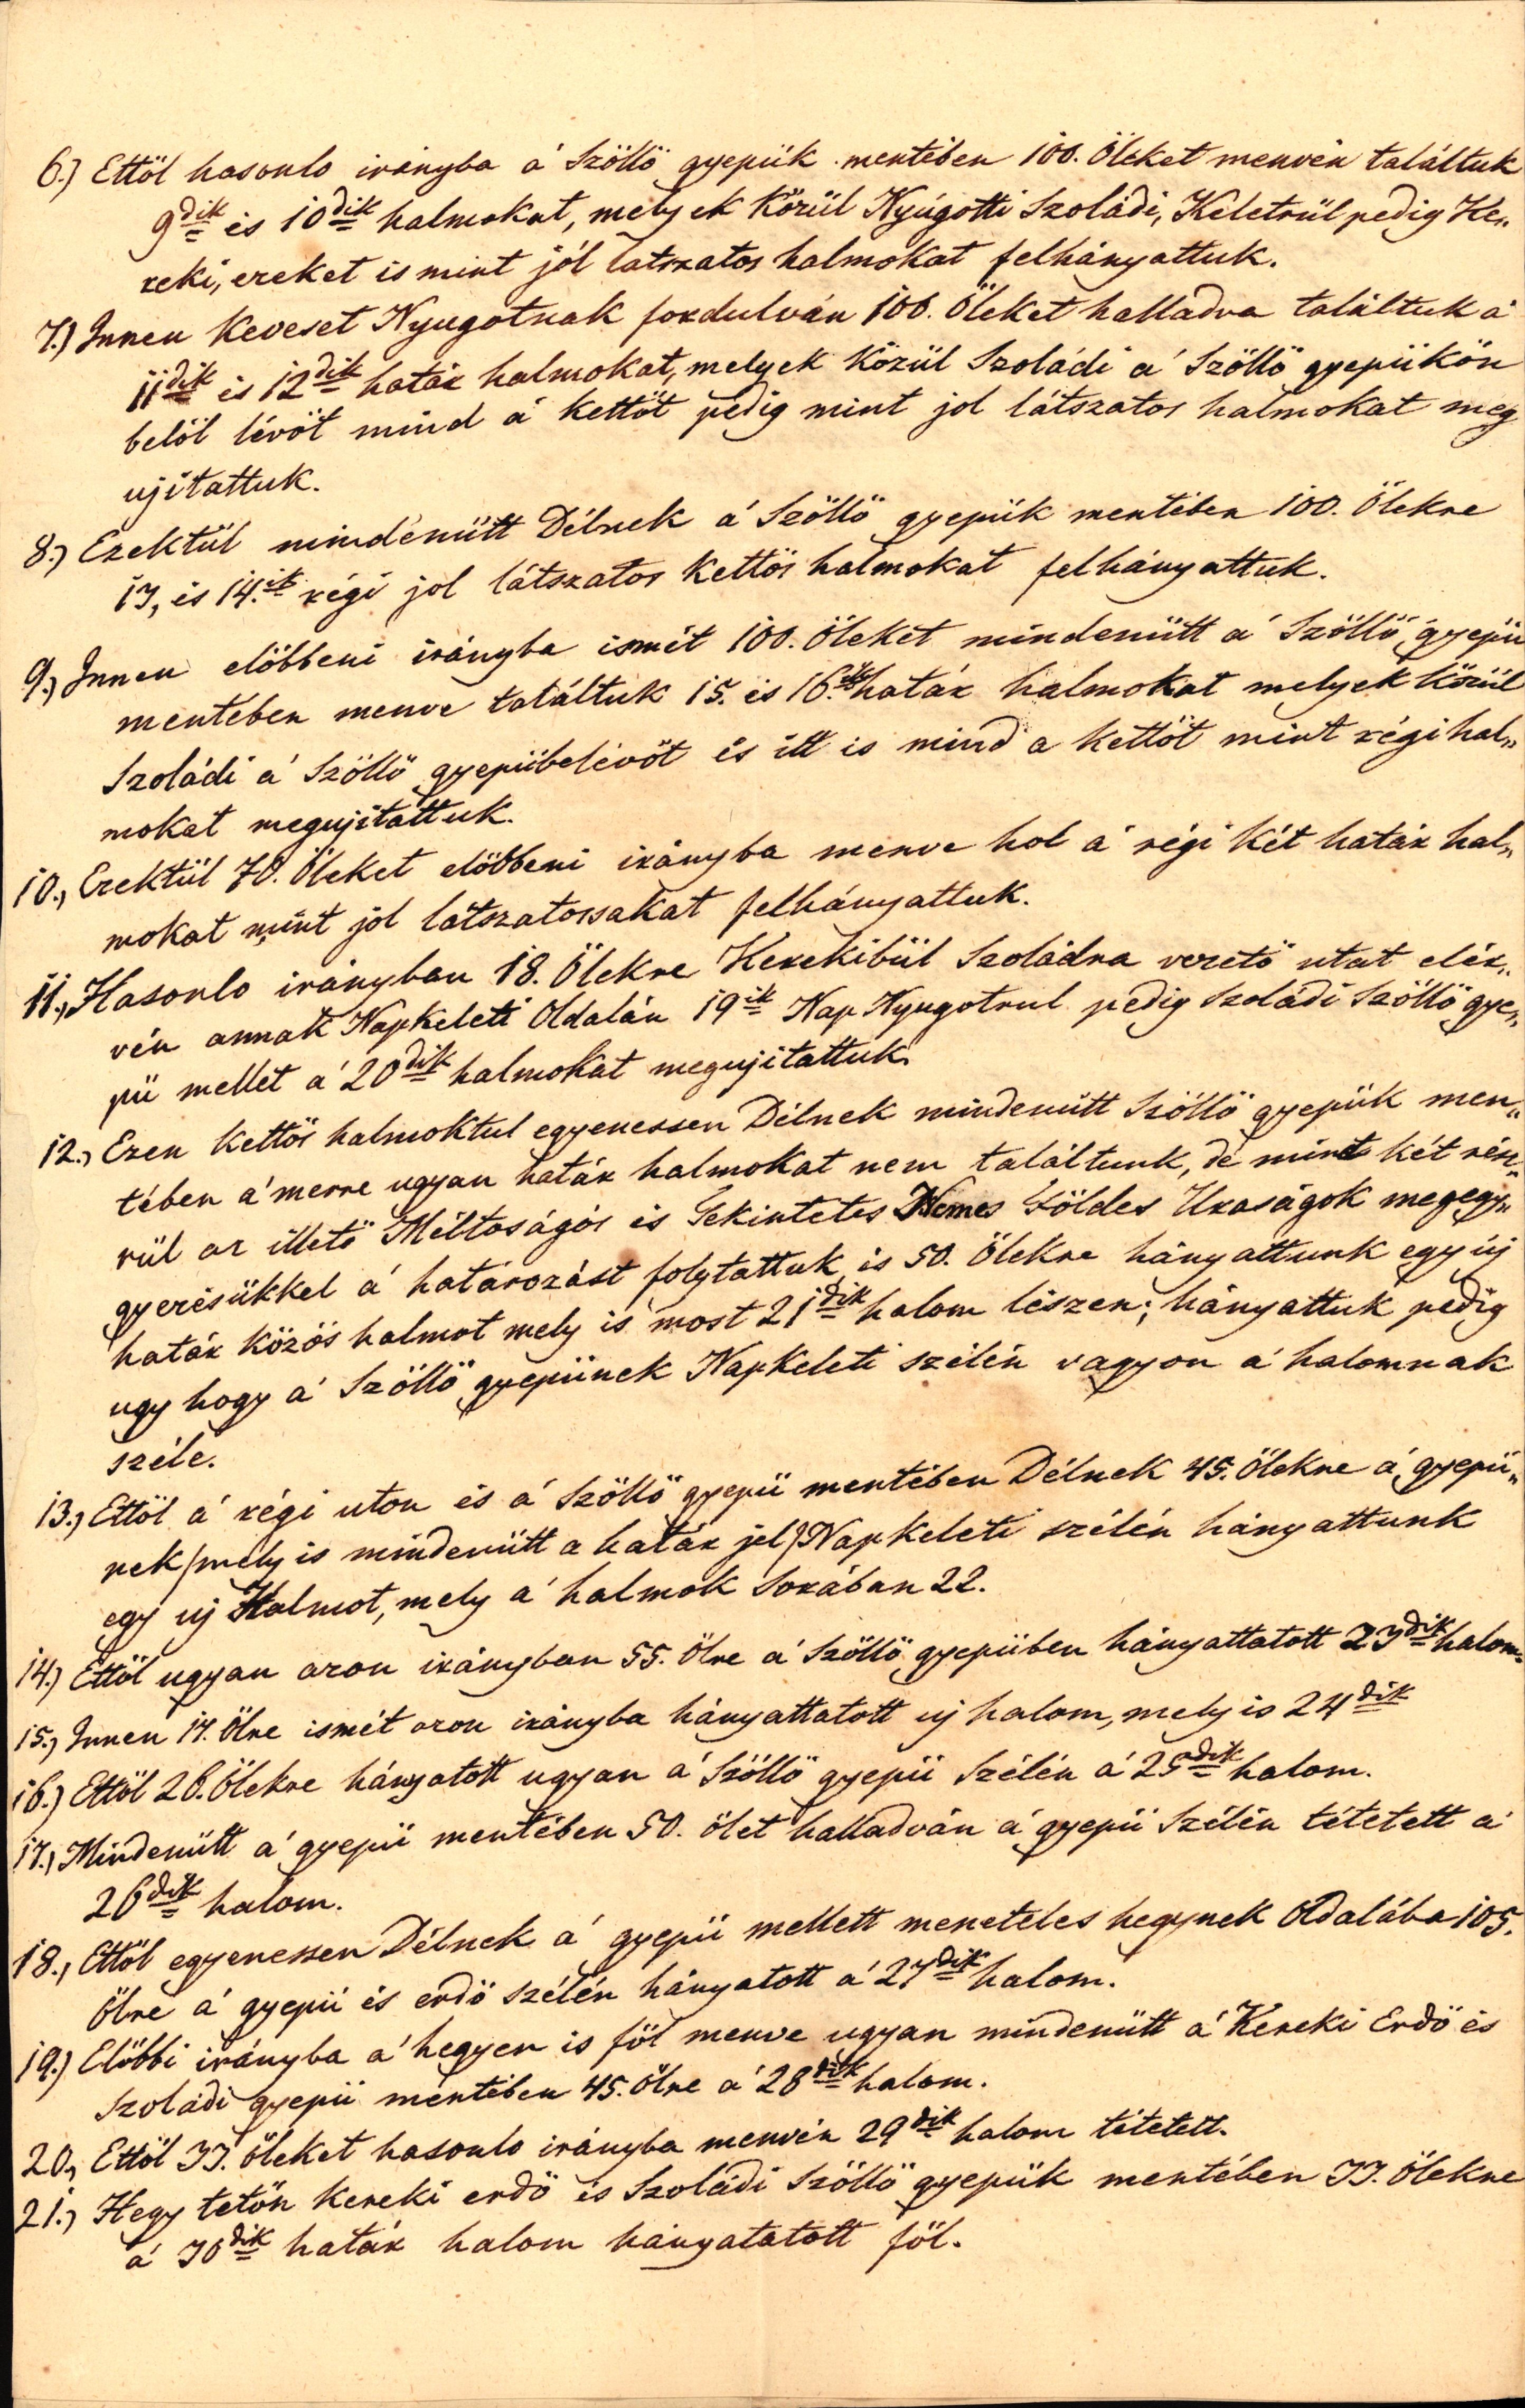 6.) Ettöl hasonlo irányba a' Szöllö gyepük mentében 100. Öleket menvén találtuk
9dik és 10dik halmokat, melyek közül Nyúgotti Szoládi, Keletrül pedig Ke„
reki, ezeket is mint jól latszatos halmokat felhányattuk.
7.) Innen keveset Nyugotnak fordulván 100. Öleket halladva találtuk a'
11dik és 12dik határ halmokat, melyek közül Szoládi a' Szöllö gyepükön
belöl lévöt mind a' kettöt pedig mint jol látszatos halmokat meg
ujítattuk.
8.) Ezektül mindenütt Délnek a' Szöllö gyepük mentében 100. Ölekre
13, és 14.ik régi jol látszatos kettös halmokat felhányattuk.
9.) Innen elöbbeni irányba ismét 100. Öleket mindenütt a' Szöllö gyepü
mentében menve találtuk 15. és 16.ik határ halmokat melyek közül
Szoládi a' Szöllö gyepübelévöt és itt is mind a kettöt mint régi hal„
mokat megujítattuk.
10., Ezektül 70. Öleket elöbbeni irányba menve hol a' régi két határ hal„
mokat mint jol látszatossakat felhányattuk.
11., Hasonlo irányban 18. Ölekre Kerekibül Szoládra vezetö utat elér„
vén annak Napkeleti Oldalán 19ik Nap Nyugotrul pedig Szoládi Szöllö gye„
pü mellet a' 20dik halmokat megujitattuk.
12., Ezen kettös halmoktul egyenessen Délnek mindenütt Szöllö gyepük men„
tében a' merre ugyan határ halmokat nem találtunk, de mint két rész„
rül az illetö Méltoságos és Tekintetes Nemes Földes Uraságok megegy„
gyezésükkel a' határozást folytattuk és 50. Ölekre hányattunk egy új
határ közös halmot mely is most 21dik halom lészen; hányattuk pedig
ugy hogy a' Szöllö gyepünek Napkeleti szélén vagyon a' halomnak
széle.
13., Ettöl a' régi uton és a' Szöllö gyepü mentében Délnek 45. Ölekre a' gyepü„
nek /mely is mindenütt a határ jel/ Napkeleti szélén hányattunk
egy uj Halmot, mely a' halmok sorában 22.
14.) Ettöl ugyan azon irányban 55. Ölre a' Szöllö gyepüben hányattatott 23dik halom.
15., Innen 17. Ölre ismét azon irányba hányattatott uj halom, mely is 24dik
16.) Ettöl 26. Ölekre hányatott ugyan a' Szöllö gyepü Szélén a' 25dik halom.
17., Mindenütt a' gyepü mentében 50. ölet halladván a' gyepü Szélén tétetett a'
26dik halom.
18., Ettöl egyenessen Délnek a' gyepü mellett meneteles hegynek Oldalába 105.
Ölre a' gyepü és erdö szélén hányatott a' 27dik halom.
19.) Elöbbi irányba a' hegyen is föl menve ugyan mindenütt a' Kereki Erdö és
Szoládi gyepü mentében 45. Ölre a' 28dik halom.
20., Ettöl 33. öleket hasonlo irányba menvén 29dik halom tétetett.
21., Hegy tetön Kereki erdö és Szoládi Szöllö gyepük mentében 33. Ölekre
a' 30dik határ halom hányatatott föl.